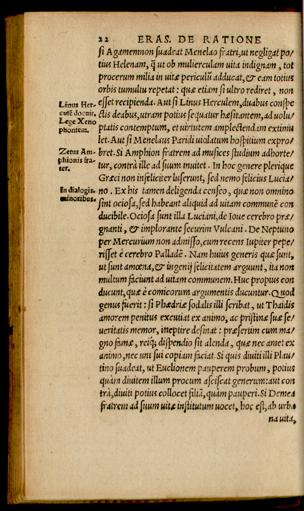 22 ERAS. DE RATIONE
si Agamemnon suadeat Menelao fratri, ut negligat po/
tius Helenam, q̃ ut ob mulierculam uita indignam, tot
procerum milia in uitæ periculū adducat, & eam toties
orbis tumultu repetat: quæ etiam si ultro rediret, non
esset recipienda. Aut si Linus Herculem, duabus conspe
ctis deabus, utram potius sequatur hæsitantem, ad uolu/
ptatis contemptum, et uirtutem amplectendam extimu
let. Aut si Menelaus Paridi uiolatum hospitium expro/
bret. Si Amphion fratrem ad musices studium adhorte/
tur, contrà ille ad suum inuitet. In hoc genere plerique
Græci non infeliciter luserunt, sed nemo felicius Lucia/
no. Ex his tamen deligenda censeo, quæ non omnino
sint ociosa, sed habeant aliquid ad uitam communē con
ducibile. Ociosa sunt illa Luciani, de Ioue cerebro præ/
gnanti, & implorante securim Vulcani. De Neptuno
per Mercurium non admisso, cum recens Iupiter pepe/
risset è cerebro Palladē. Nam huius generis quæ sunt,
ut sunt amœna, & ingenij felicitatem arguunt, ita non
multum faciunt ad uitam communem. Huc propius con
ducunt, quæ è comicorum argumentis ducuntur. Quod
genus fuerit: si Phædriæ sodalis illi scribat, ut Thaidis
amorem penitus excutiat ex animo, ac pristinæ suæ se/
ueritatis memor, ineptire desinat: præsertim cum ma/
gno famæ, reiq́; dispendio sit alenda, quæ nec amet ex
animo, nec uni sui copiam faciat. Si quis diuiti illi Plau/
tino suadeat, ut Euclionem pauperem probum, potius
quàm diuitem illum procum asciscat generum: aut con
trà, diuiti potius collocet filiā, quàm pauperi. Si Demea
fratrem ad suum uitæ institutum uocet, hoc est, ab urba
na uita,
Linus Her-
culē docuit,
Lege Xeno
phontem.
Zetus Am-
phionis fra-
ter.
In dialogis
minoribus.